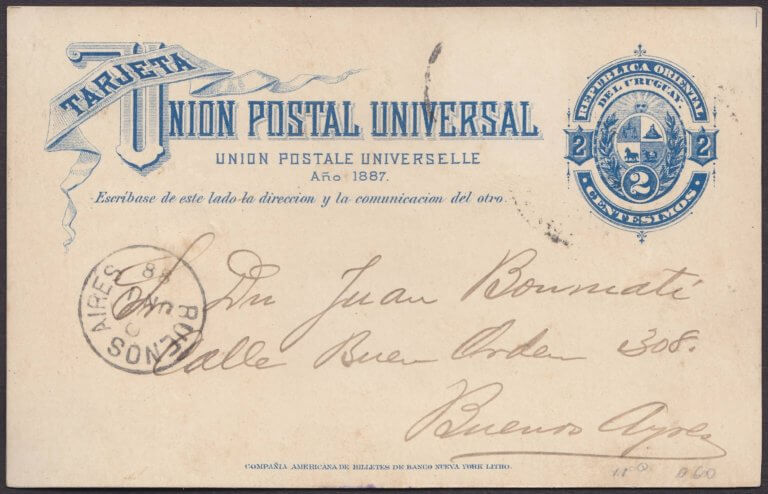 TARJETA
UNION POSTAL UNIVERSAL
UNION POSTALE UNIVERSELLE
Año 1887.
Escríbase de este lado la direccion y la comunicacion del otro.
REPUBLICA ORIENTAL
DEL URUGUAY.
2 2
2
CENTESIMOS
BUENOS AIRES
88
Juan Bonmati
Calle Buen Orden 308.
Buenos Ayres
COMPAÑIA AMERICANA DE BILLETES DE BANCO NUEVA YORK LITHO.